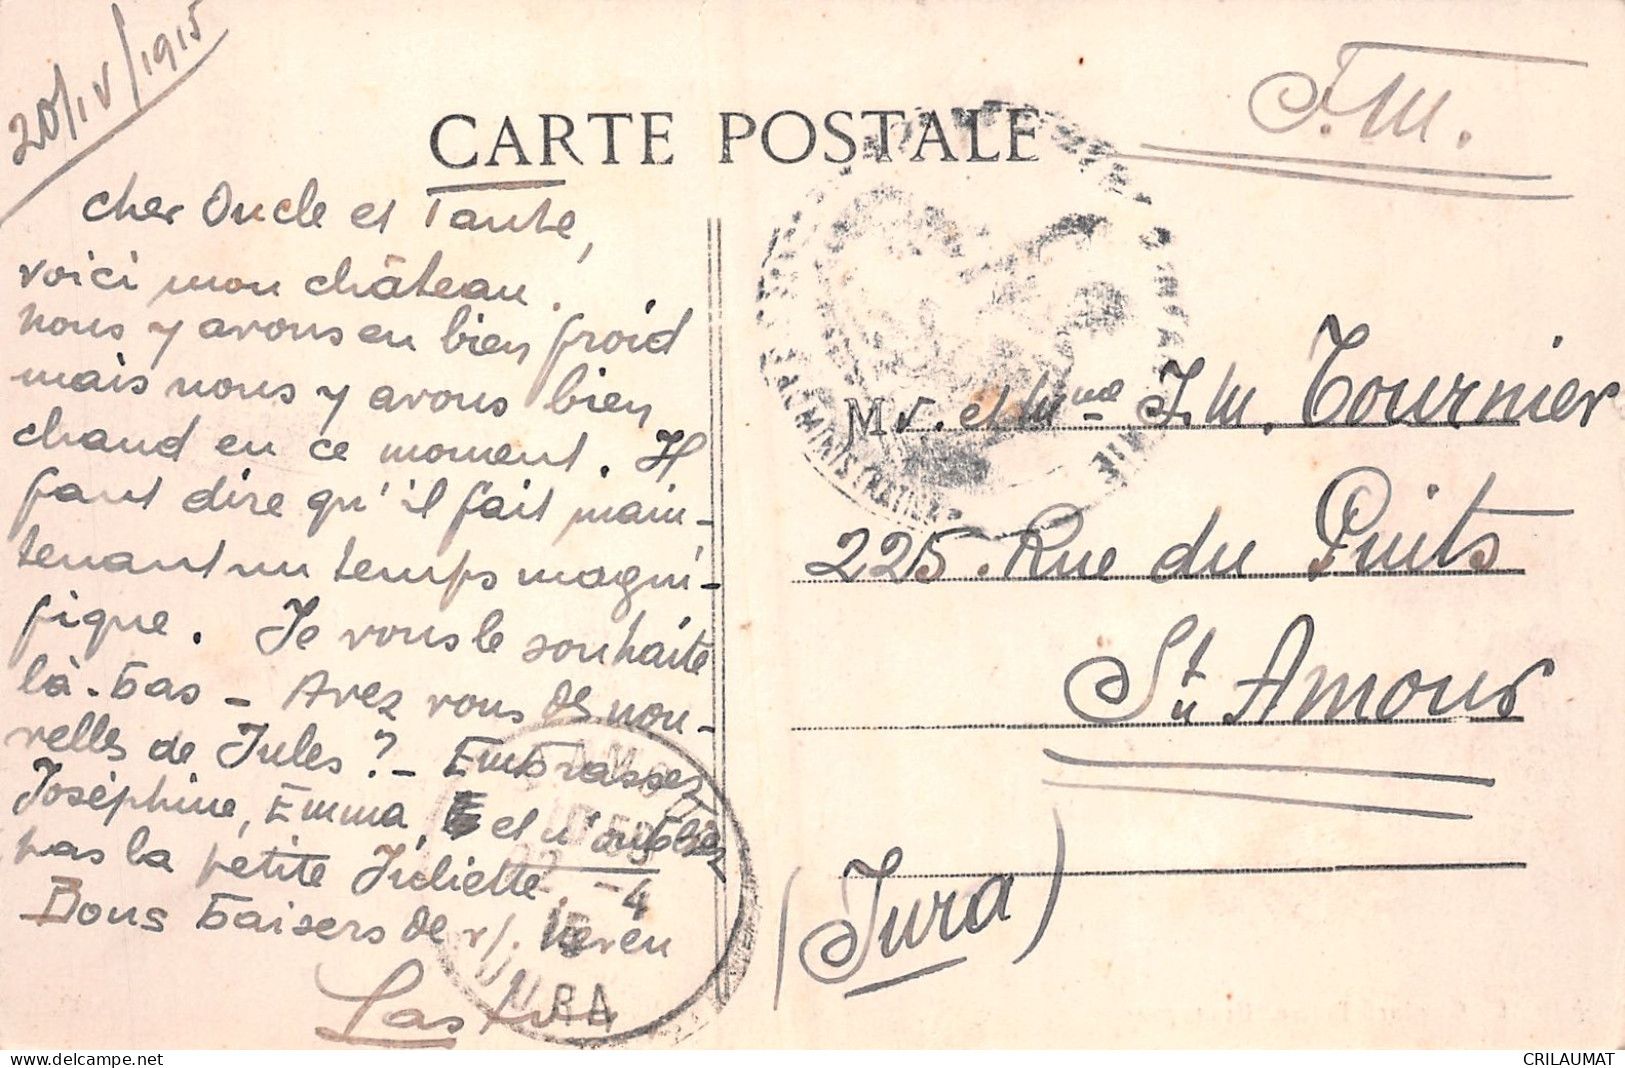 20/IV/1915
CARTE POSTALE
F.M.
cher Oncle et Tante,
voici mon château.
nous y avons eu bien froid
mais nous y avons bien
chaud en ce moment. Il
faut dire qu'il fait main-
tenant un temps magni-
fique. Je vous le souhaite
là-bas - Avez vous de nou-
velles de Jules ? - Embrassez
Joséphine, Emma, et n'oubliez
pas la petite Juliette.
Bons baisers de v/. Neveu
Mr. et Mme J.M. Tournier
225. Rue du Puits
St Amour
(Jura)
ADMINISTRATION
22 -4
JURA
www.delcampe.net
CRILAUMAT